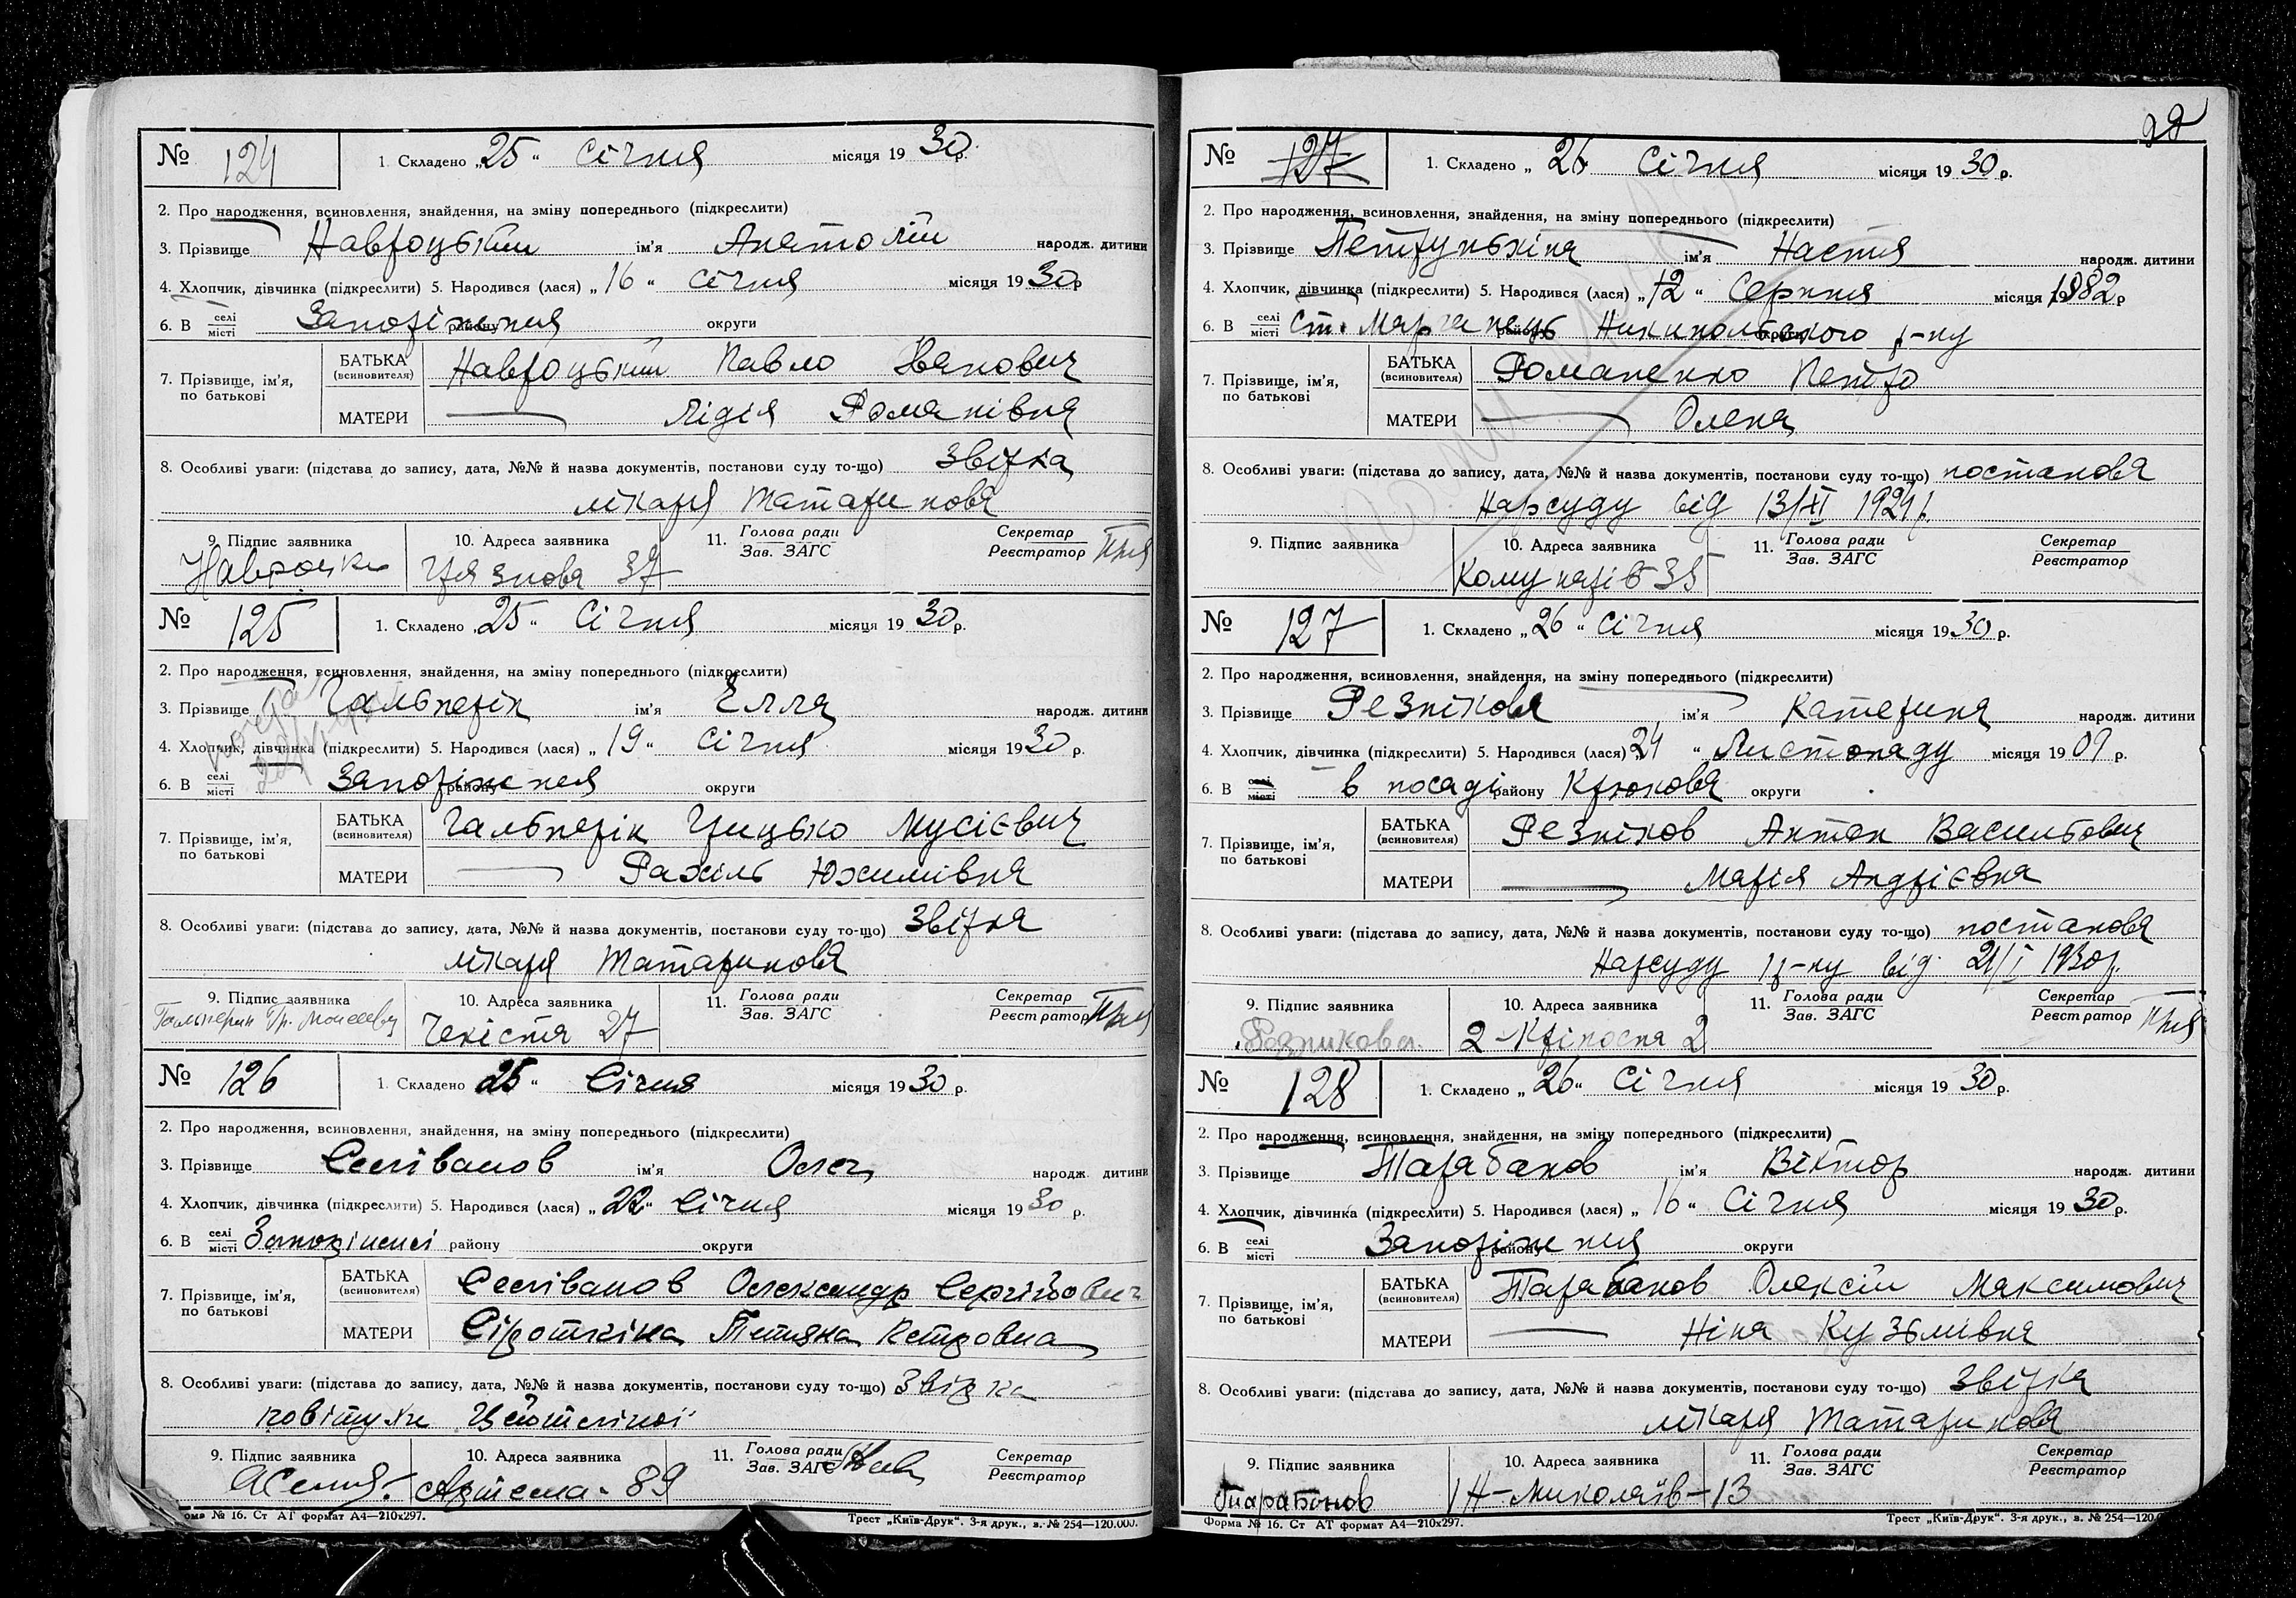 № 124
1. Складено „25“ Січня місяця 1930 р.
2. Про народження, всиновлення, знайдення, на зміну попереднього (підкреслити)
3. Прізвище Навроцький ім'я Анатолій народж. дитини
4. Хлопчик, дівчинка (підкреслити) 5. Народився (лася) „16“ Січня місяця 1930 р
6. В селі місті Запоріжжя району округи
7. Прізвище, ім'я, по батькові
БАТЬКА (всиновителя) Навроцький Павло Іванович
МАТЕРИ — Лідія Романівна
8. Особливі уваги: (підстава до запису, дата, №№ й назва документів, постанови суду то-що) Звірка
лікаря Татаринова
9. Підпис заявника 10. Адреса заявника 11. Голова ради Зав. ЗАГС Секретар Реєстратор
37
№ 125
1. Складено „25“ Січня місяця 1930 р.
2. Про народження, всиновлення, знайдення, на зміну попереднього (підкреслити)
3. Прізвище Гальперін ім'я Елла народж. дитини
4. Хлопчик, дівчинка (підкреслити) 5. Народився (лася) „19“ Січня місяця 1930 р.
6. В селі місті Запоріжжя району округи
7. Прізвище, ім'я, по батькові
БАТЬКА (всиновителя) Гальперін Грицько Мусієвич
МАТЕРИ — Рахіль Юхимівна
8. Особливі уваги: (підстава до запису, дата, №№ й назва документів, постанови суду то-що) Звірка
лікаря Татаринова
9. Підпис заявника 10. Адреса заявника 11. Голова ради Зав. ЗАГС Секретар Реєстратор
Гальперин Гр. Моисеевич Чекістів 27
№ 126
1. Складено 25“ Січня місяця 1930 р.
2. Про народження, всиновлення, знайдення, на зміну попереднього (підкреслити)
3. Прізвище Селіванов ім'я Олег народж. дитини
4. Хлопчик, дівчинка (підкреслити) 5. Народився (лася) „22“ Січня місяця 1930 р.
6. В селі місті Запоріжжі району округи
7. Прізвище, ім'я, по батькові
БАТЬКА (всиновителя) Селіванов Олександр Сергійович
МАТЕРИ Сіроткіна Тетяна Петровна
8. Особливі уваги: (підстава до запису, дата, №№ й назва документів, постанови суду то-що) Звірка
повітухи
9. Підпис заявника 10. Адреса заявника 11. Голова ради Зав. ЗАГС Секретар Реєстратор
Артема - 89
Форма № 16. Ст АТ формат А4—210х297. Трест „Київ-Друк“. 3-я друк., з. № 254—120.000.
№ 127
1. Складено „26 Січня місяця 1930 р.
2. Про народження, всиновлення, знайдення, на зміну попереднього (підкреслити)
3. Прізвище Петрунькіна ім'я Настя народж. дитини
4. Хлопчик, дівчинка (підкреслити) 5. Народився (лася) „12“ Серпня місяця 1882 р
6. В селі місті ст. Марганець району Никипольського округи р-ну
7. Прізвище, ім'я, по батькові
БАТЬКА (всиновителя) Романенко Петро
МАТЕРИ — Олена
8. Особливі уваги: (підстава до запису, дата, №№ й назва документів, постанови суду то-що) постанова
Нарсуду від 13/XI 1929 р.
9. Підпис заявника 10. Адреса заявника 11. Голова ради Зав. ЗАГС Секретар Реєстратор
Комунарів 35
№ 127
1. Складено „26“ Січня місяця 1930 р.
2. Про народження, всиновлення, знайдення, на зміну попереднього (підкреслити)
3. Прізвище Резнікова ім'я Катерина народж. дитини
4. Хлопчик, дівчинка (підкреслити) 5. Народився (лася) 24 “ Листопаду місяця 1909 р.
6. В селі місті в посаді району Крюкова округи
7. Прізвище, ім'я, по батькові
БАТЬКА (всиновителя) Резніков Антон Васильович
МАТЕРИ — Марія Андрієвна
8. Особливі уваги: (підстава до запису, дата, №№ й назва документів, постанови суду то-що) постанова
Нарсуду 1 р-ну від 21/I 1930 р.
9. Підпис заявника 10. Адреса заявника 11. Голова ради Зав. ЗАГС Секретар Реєстратор
Резникова. 2-Кріпосна 2
№ 128
1. Складено „26“ Січня місяця 1930 р.
2. Про народження, всиновлення, знайдення, на зміну попереднього (підкреслити)
3. Прізвище Тарабанов ім'я Віктор народж. дитини
4. Хлопчик, дівчинка (підкреслити) 5. Народився (лася) „16“ Січня місяця 1930 р.
6. В селі місті Запоріжжя району округи
7. Прізвище, ім'я, по батькові
БАТЬКА (всиновителя) Тарабанов Олексій Максимович
МАТЕРИ — Ніна Кузьмівна
8. Особливі уваги: (підстава до запису, дата, №№ й назва документів, постанови суду то-що) Звірка
лікаря Татаринова
9. Підпис заявника 10. Адреса заявника 11. Голова ради Зав. ЗАГС Секретар Реєстратор
Тарабанов Н-Миколаїв-13
Форма № 16. Ст АТ формат А4—210х297. Трест „Київ-Друк“. 3-я друк., з. № 254—120.